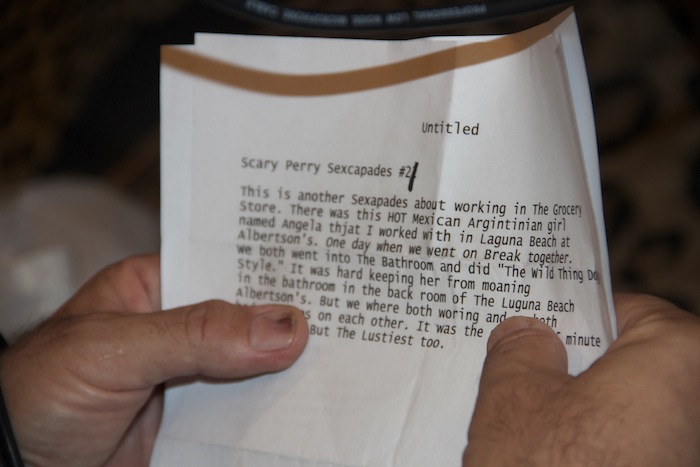 PROFESSIONAL LOW NOISE MICROPHONE CABLE
Untitled
Scary Perry Sexcapades #2
This is another Sexapades about working in The Grocery
Store. There was this HOT Mexican Argintinian girl
named Angela thjat I worked with in Laguna Beach at
Albertson's. One day when we went on Break together.
we both went into The Bathroom and did "The Wild Thing Do
Style." It was hard keeping her from moaning
in the bathroom in the back room of The Luguna Beach
Albertson's. But we where both woring and both
on each other. It was the minute
But The Lustiest too.